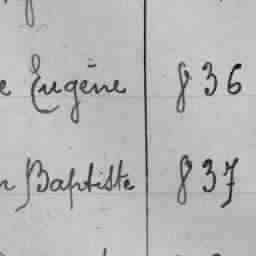 e Eugène 836
n Baptiste 837